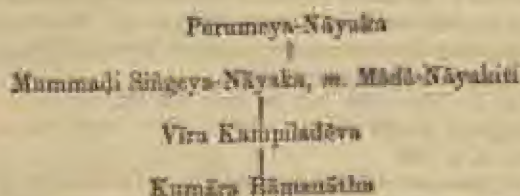 Purumeya-Nāyaka
Mummaḍi Siṅgeya-Nāyaka, m. Mādā-Nāyakiti
Vīra Kampiladēva
Kumāra Rāmanātha